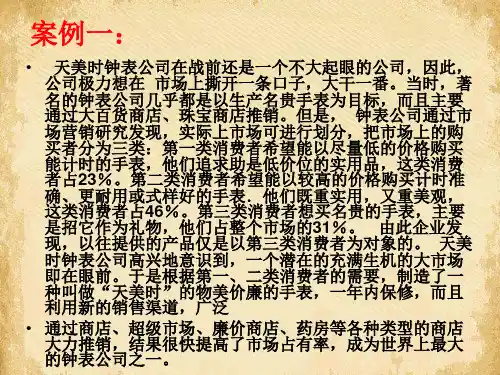 案例一：
• 天美时钟表公司在战前还是一个不大起眼的公司，因此，
公司极力想在 市场上撕开一条口子，大干一番。当时，著
名的钟表公司几乎都是以生产名贵手表为目标，而且主要
通过大百货商店、珠宝商店推销。但是， 钟表公司通过市
场营销研究发现，实际上市场可进行划分，把市场上的购
买者分为三类：第一类消费者希望能以尽量低的价格购买
能计时的手表，他们追求助是低价位的实用品，这类消费
者占23％。第二类消费者希望能以较高的价格购买计时准
确、更耐用或式样好的手表．他们既重实用，又重美观，
这类消费者占46％。第三类消费者想买名贵的手表，主要
是招它作为礼物，他们占整个市场的31％。 由此企业发
现，以往提供的产品仅是以第三类消费者为对象的。 天美
时钟表公司高兴地意识到，一个潜在的充满生机的大市场
即在眼前。于是根据第一、二类消费者的需要，制造了一
种叫做“天美时”的物美价廉的手表，一年内保修，而且
利用新的销售渠道，广泛
• 通过商店、超级市场、廉价商店、药房等各种类型的商店
大力推销，结果很快提高了市场占有率，成为世界上最大
的钟表公司之一。